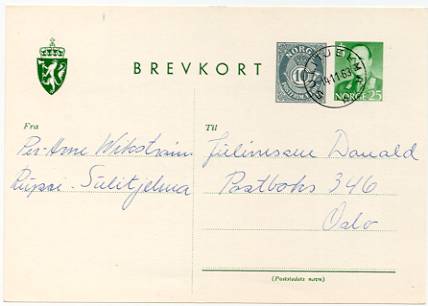 BREVKORT
NORGE
10
NORGE 25
SULITJELMA
14.11.63
Fra
Per-Arne Wikstrøm
Furulund. Sulitjelma
Til
Julenissen Donald
Postboks 346
Oslo
(Poststedets navn)